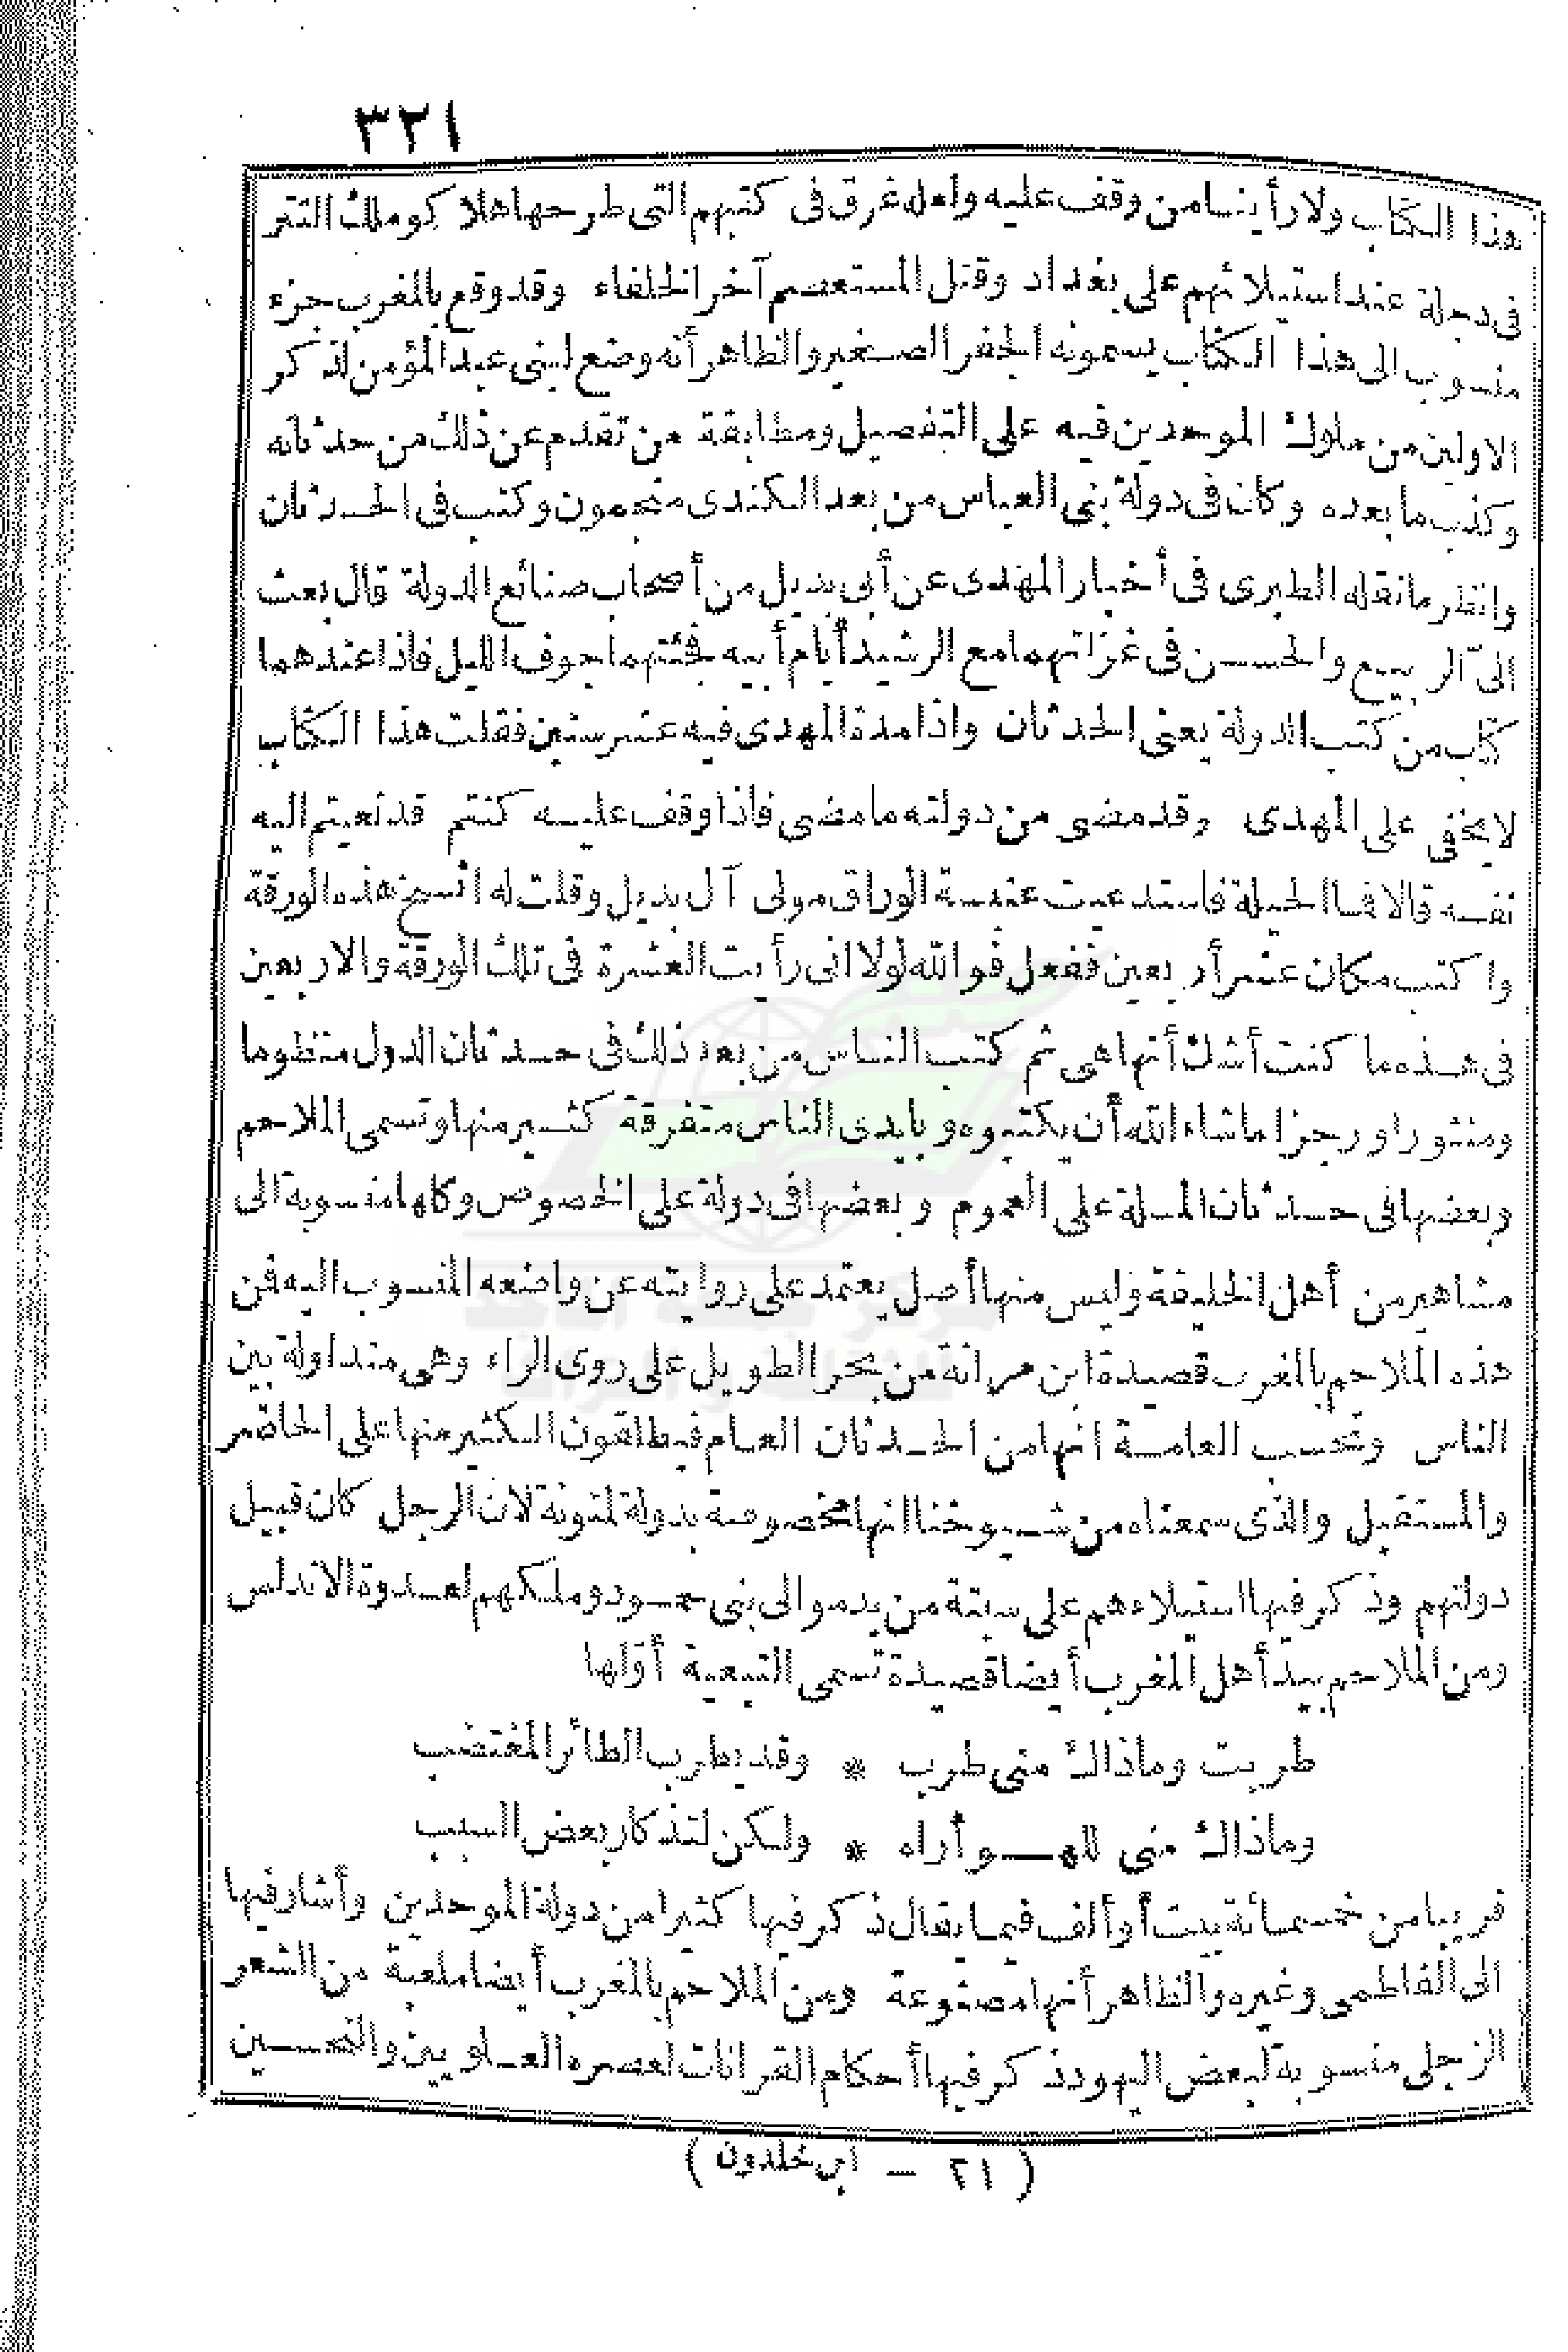 ٣٢١
هذا الكتاب ولا رأينا من وقف عليه ولعله غرق فى كتبهم التى طرحها هلاكو ملك التتر
فى دجلة عند استيلائهم على بغداد وقتل المستعصم آخر الخلفاء وقد وقع بالمغرب جزء
منسوب الى هذا الكتاب يسمونه الجفر الصغير والظاهر أنه وضع لبنى عبد المؤمن لذكر
الاولين من ملوك الموحدين فيه على التفصيل ومطابقة من تقدم عن ذلك من حدثانه
وكذب ما بعده وكان فى دولة بنى العباس من بعد الكندى منجمون وكتب فى الحدثان
وانظر ما نقله الطبرى فى أخبار المهدى عن أبى بديل من أصحاب صنائع الدولة قال بعث
الىّ الربيع والحسن فى غزاتهما مع الرشيد أيام أبيه فجئتهما جوف الليل فاذا عندهما
كتاب من كتب الدولة يعنى الحدثان واذا مدة المهدى فيه عشر سنين فقلت هذا الكتاب
لا يخفى على المهدى وقد مضى من دولته ما مضى فاذا وقف عليه كنتم قد نعيتم اليه
نفسه قالا فما الحيلة فاستدعيت عنبسة الوراق مولى آل بديل وقلت له انسخ هذه الورقة
واكتب مكان عشر أربعين ففعل فوالله لولا انى رأيت العشرة فى تلك الورقة والاربعين
فى هذه ما كنت أشك أنها هى ثم كتب الناس من بعد ذلك فى حدثان الدول منظوما
ومنثورا ورجزا ما شاء الله أن يكتبوه وبايدى الناس متفرقة كثير منها وتسمى الملاحم
وبعضها فى حدثان الملة على العموم وبعضها فى دولة على الخصوص وكلها منسوبة الى
مشاهير من أهل الخليقة وليس منها أصل يعتمد على روايته عن واضعه المنسوب اليه فمن
هذه الملاحم بالمغرب قصيدة ابن مرانة من بحر الطويل على روى الراء وهى متداولة بين
الناس وتحسب العامة انها من الحدثان العام فيطلقون الكثير منها على الحاضر
والمستقبل والذى سمعناه من شيوخنا انها مخصوصة بدولة لمتونة لان الرجل كان قبيل
دولتهم وذكر فيها استيلاءهم على سبتة من يد موالى بنى حمود وملكهم لعدوة الاندلس
ومن الملاحم بيد أهل المغرب أيضا قصيدة تسمى التبعية أوّلها
طربت وماذاك منى طرب * وقد يطرب الطائر المغتضب
وماذاك منى للهو أراه * ولكن لتذكار بعض السبب
قريبا من خمسمائة بيت أو ألف فيما يقال ذكر فيها كثيرا من دولة الموحدين وأشار فيها
الى الفاطمى وغيره والظاهر أنها مصنوعة ومن الملاحم بالمغرب أيضا ملعبة من الشعر
الزجلى منسوبة لبعض اليهود ذكر فيها أحكام القرانات لعصره العلويين والنحسين
( ٢١ – ابن خلدون )